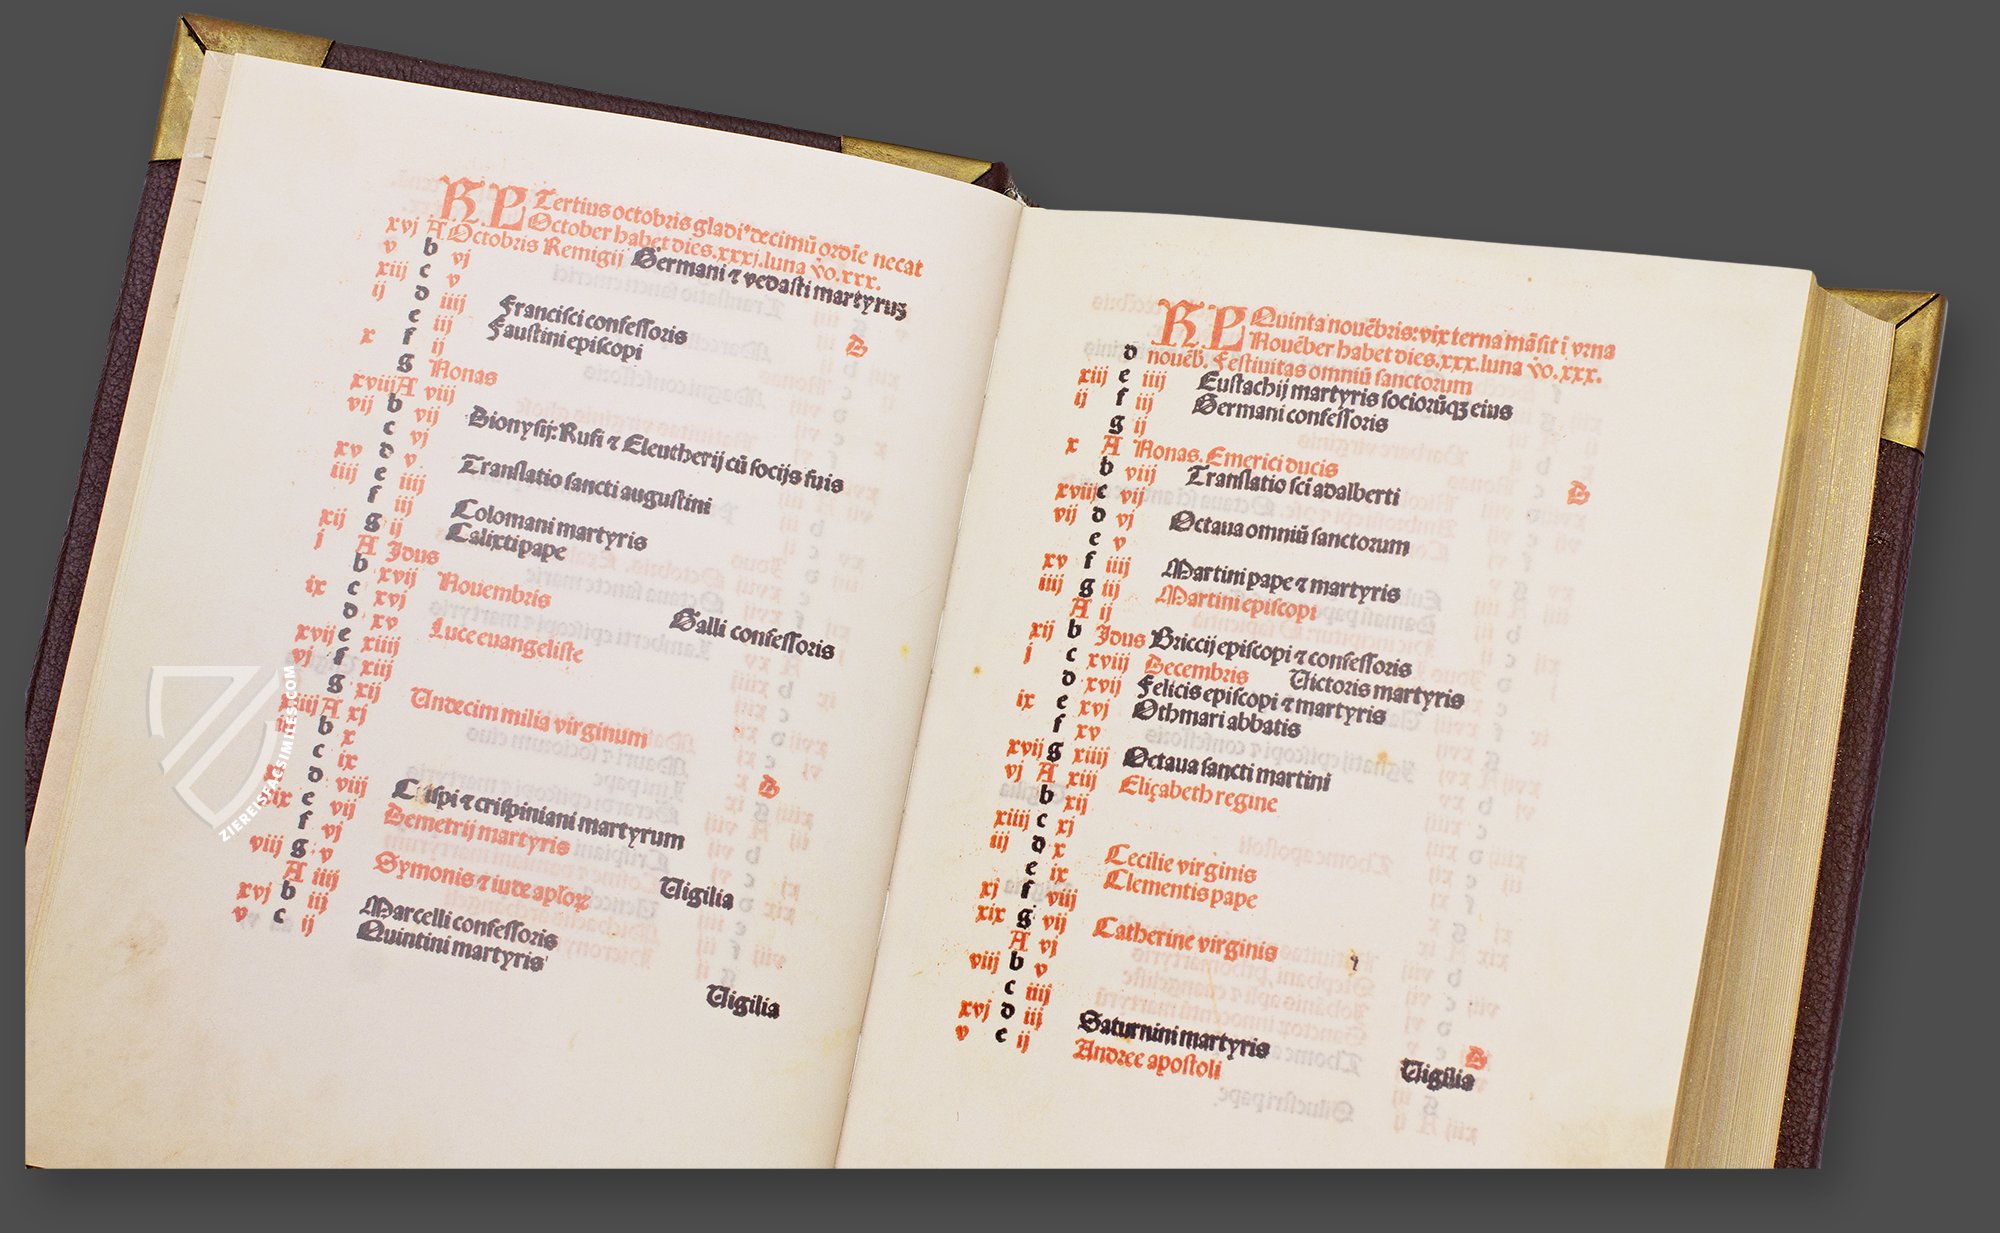 KL Tertius octobris gladi⁹ decimū ordīe necat
October habet dies.xxxj.luna v̄o.xxx.
xvj A Octobris Remigij Germani ⁊ vedasti martyruꝫ
v b vj
xiij c v
ij d iiij Francisci confessoris
e iii Faustini episcopi D
x f ij
g Nonas
xviij A viij
vij b vij Dionysij: Rufi ⁊ Eleutherij cū socijs suis
c vj
xv d v Translatio sancti augustini
iiij e iiij
f iij Colomani martyris
xij g ij Calixti pape
j A Idus
b xvij Nouembris
ix c xvj Galli confessoris
d xv Luce euangeliste
xvij e xiiij
vj f xiij
g xij Undecim milia virginum
xiiij A xj
b x
c ix D
d viij Crispi ⁊ crispiniani martyrum
xix e vij Demetrij martyris
f vj Vigilia
viij g v Symonis ⁊ iude aplorꝫ
A iiij
xvj b iij Marcelli confessoris
v c ij Quintini martyris
Vigilia
ZIEREISFACSIMILES.COM
KL Quinta nouēbris: vix terna māsit i vrna
Nouēber habet dies.xxx.luna v̄o.xxx.
d nouēb. Festiuitas omniū sanctorum
xiij e iiij Eustachij martyris sociorūqꝫ eius
ij f iij Germani confessoris
g ij
x A Nonas. Emerici ducis
b viij Translatio sci adalberti D
xviij c vij
vij d vj Octaua omniū sanctorum
e v
xv f iiij Martini pape ⁊ martyris
iiij g iij Martini episcopi
A ij
xij b Idus Briccij episcopi ⁊ confessoris
j c xviij Decembris Victoris martyris
d xvij Felicis episcopi ⁊ martyris
ix e xvj Othmari abbatis
f xv
xvij g xiiij Octaua sancti martini
vj A xiij Elizabeth regine
b xij
xiiij c xj
iij d x Cecilie virginis
e ix Clementis pape
xj f viij
xix g vij Catherine virginis
A vj
viij b v
c iiij
xvj d iij Saturnini martyris D
v e ij Andree apostoli Vigilia